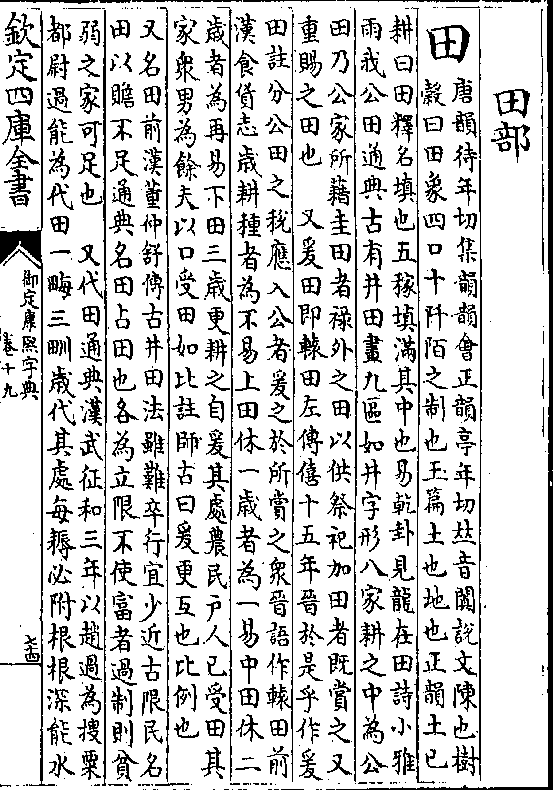 田部
田 唐韻待年切集韻韻會正韻亭年切𠀤音闐說文陳也樹
穀曰田象四口十阡陌之制也玉篇土也地也正韻土已
耕曰田釋名填也五稼填滿其中也易乾卦見龍在田詩小雅
雨我公田通典古有井田畫九區如井字形八家耕之中為公
田乃公家所藉圭田者祿外之田以供祭祀加田者既賞之又
重賜之田也 又爰田即轅田左傳僖十五年晉於是乎作爰
田註分公田之稅應入公者爰之於所賞之衆晉語作轅田前
漢食貨志歲耕種者為不易上田休一歲者為一易中田休二
歲者為再易下田三歲更耕之自爰其處農民戶人已受田其
家衆男為餘夫以口受田如比註師古曰爰更互也比例也
又名田前漢董仲舒傳古井田法雖難卒行宜少近古限民名
田以贍不足通典名田占田也各為立限不使富者過制則貧
弱之家可足也 又代田通典漢武征和三年以趙過為搜粟
都尉過能為代田一畮三甽歲代其處每耨必附根根深能水
欽定四庫全書
御定康熙字典
卷十九
七四